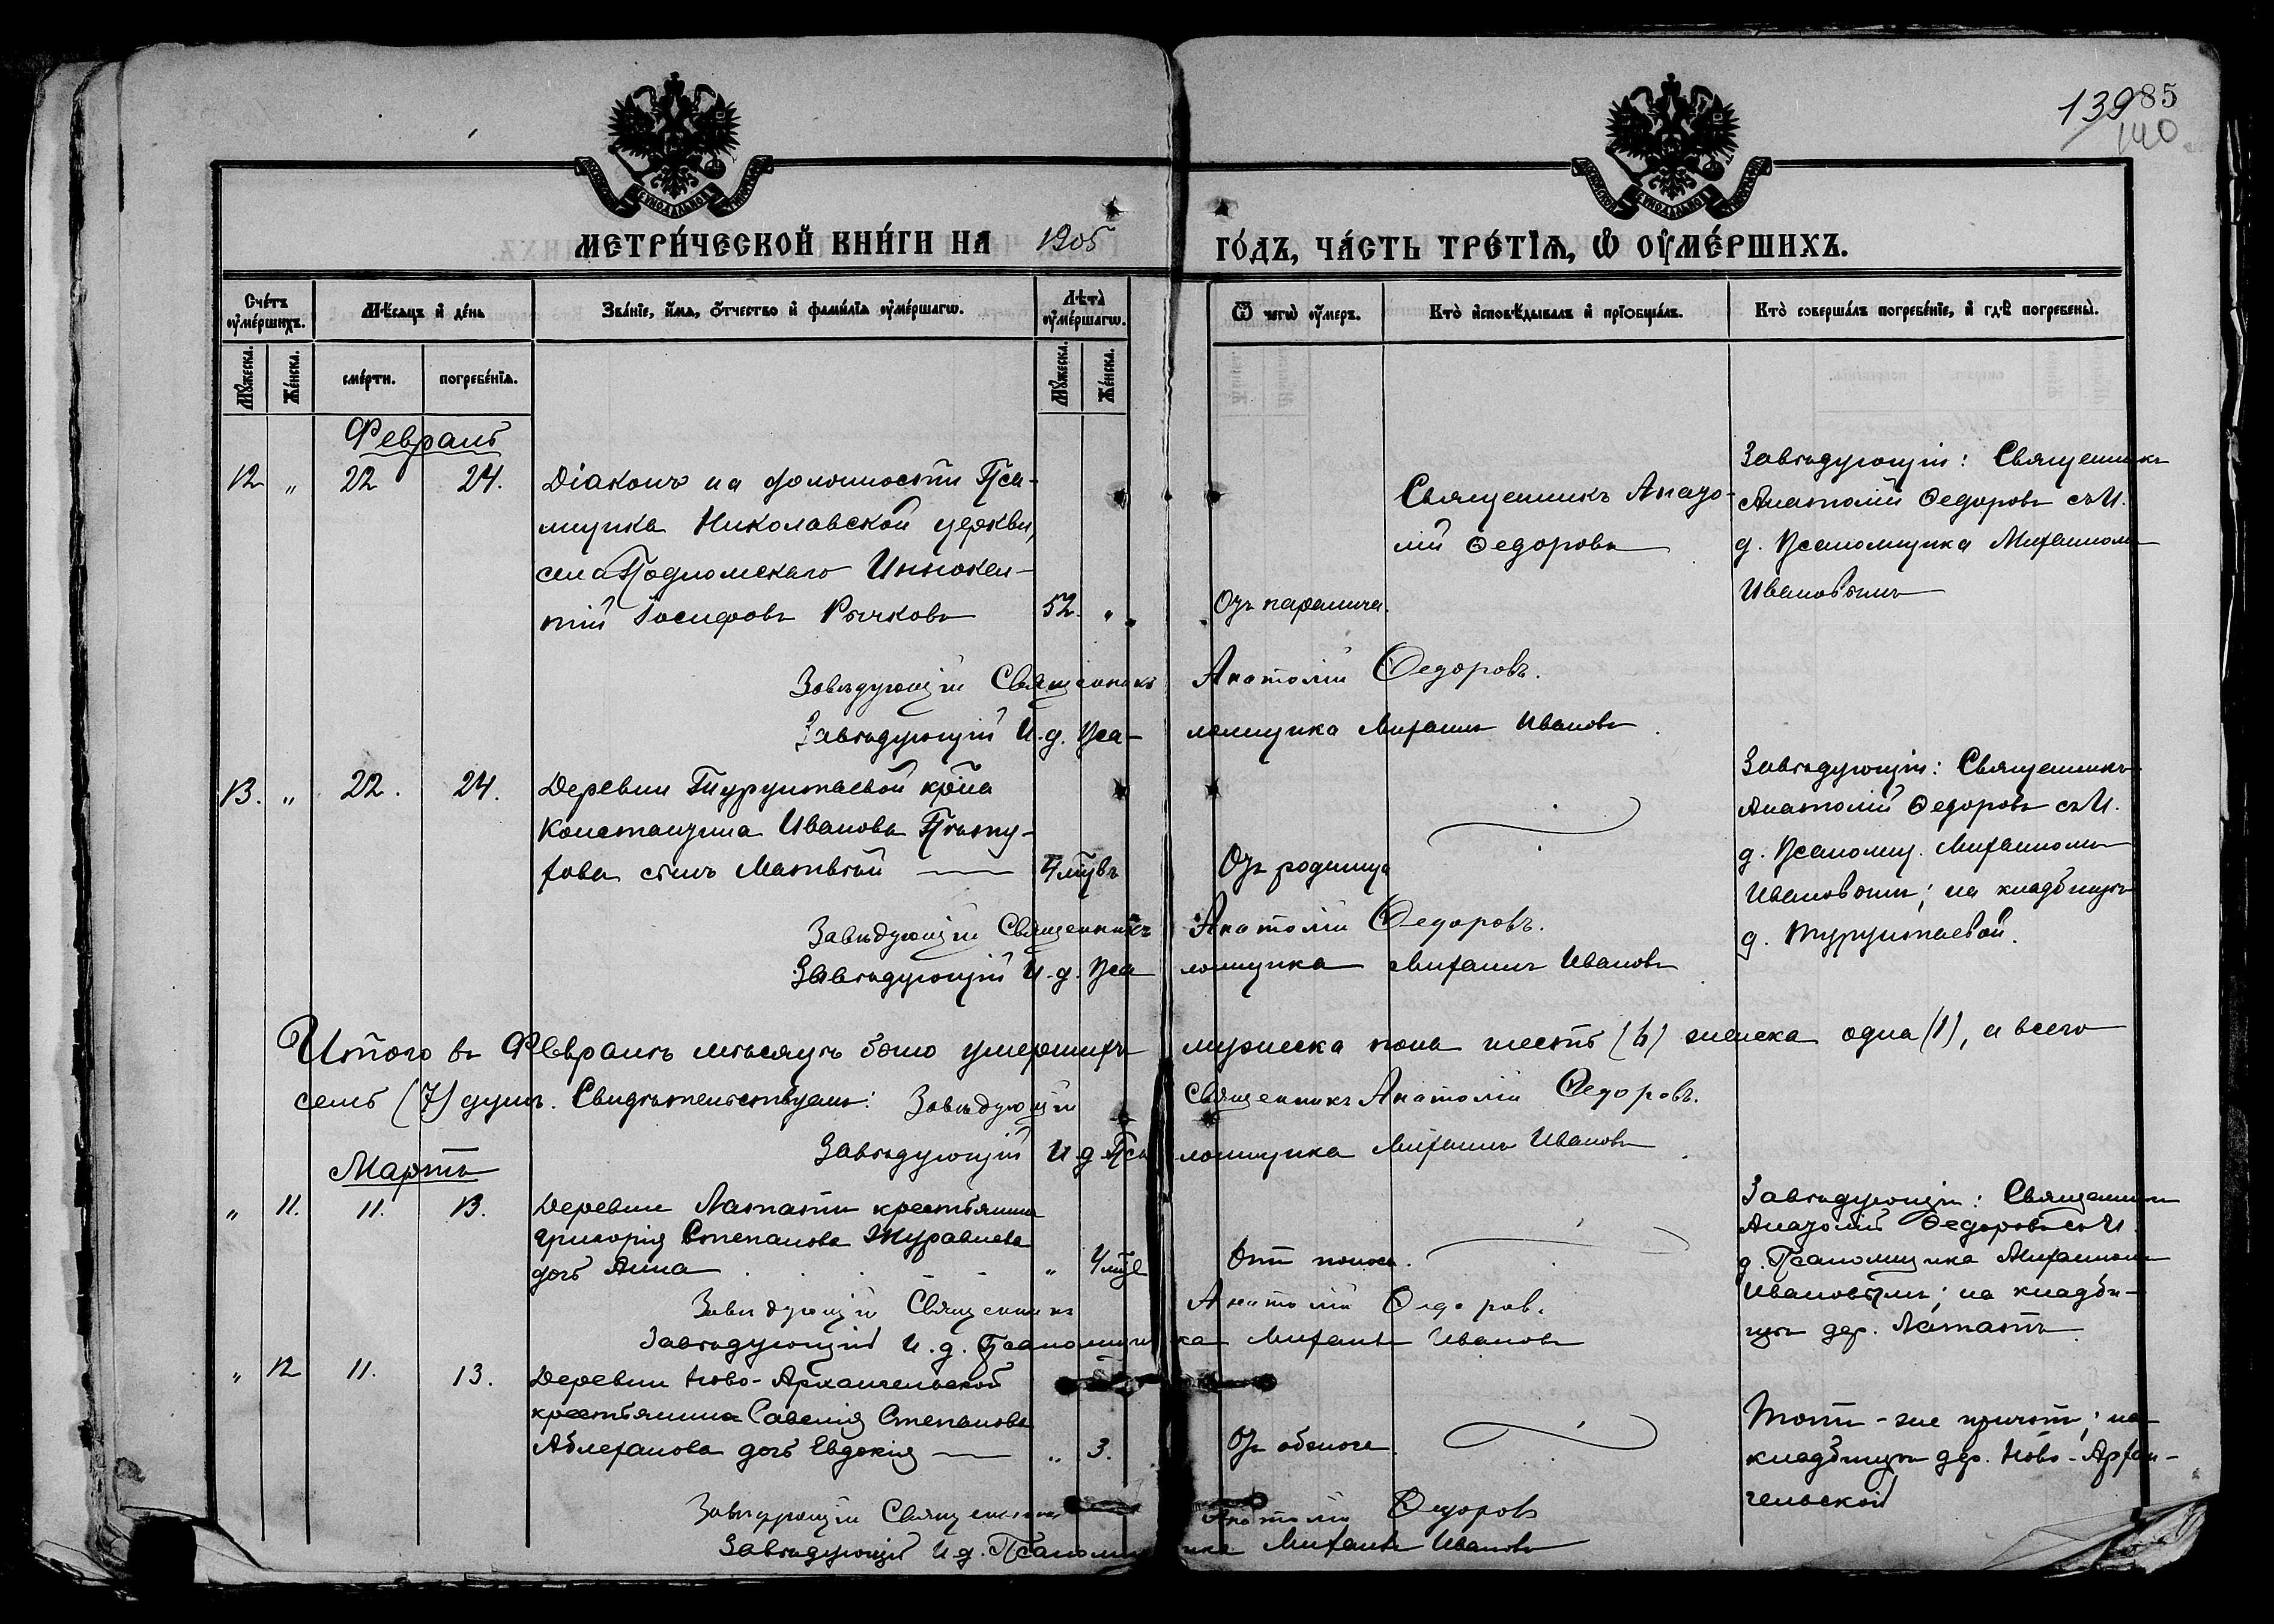 139 85
140
МЕТРИ́ЧЕСКОЙ КНИ́ГИ НА 1905 ГО́ДЪ, ЧА́СТЬ ТРЕ́ТІѦ, Ѡ ОУМЕ́РШИХЪ.
Сче́тъ оуме́ршихъ. Мѣ́сяцъ и де́нь Зва́нїе, и́мѧ, о́тчество и фами́лїѧ оуме́ршагѡ. Лѣ́та оуме́ршагѡ. Ѿ чегѡ̀ оу́меръ. Кто̀ исповѣ́дывалъ и прїѡбща́лъ. Кто̀ соверша́лъ погребе́нїе, и гдѣ̀ погребены̀.
Му́жеска. Же́нска. сме́рти. погребе́нїѧ. Му́жеска. Же́нска.
Февраль
12 „ 22 24. Діаконъ на должности Пса-
мщика Николавской церкви,
села Подломскаго Иннокен-
тій Іосифовъ Рычковъ 52. „ Отъ паралича.
Священникъ Анато-
лій Ѳедоровъ
Завѣдующій: Священникъ
Анатолій Ѳедоровъ съ И.
д. Псаломщика Михаиломъ
Ивановымъ
Завѣдующій Священникъ Анатолій Ѳедоровъ.
Завѣдующій И.д. Псаломщика Михаилъ Ивановъ.
13. „ 22. 24. Деревни Турунтаевой кр̃на
Константина Иванова
сынъ Матвѣй 4 м̃цвъ Отъ родимца
Завѣдующій: Священникъ
Анатолій Ѳедоровъ съ И.
д. Псаломщ. Михаиломъ
Ивановымъ; на кладбищѣ
д. Турунтаевой.
Завѣдующій Священникъ Анатолій Ѳедоровъ.
Завѣдующій И.д. Псаломщика Михаилъ Ивановъ
Итого въ Февралѣ мѣсяцѣ было умершихъ мужеска пола шесть (6) женска одна (1), а всего
семь (7) душъ. Свидѣтельствуемъ: Завѣдующій Священникъ Анатолій Ѳедоровъ.
Завѣдующій И д Псаломщика Михаилъ Ивановъ.
Мартъ
„ 11. 11. 13. Деревни Лататъ крестьянина
Григорія Степанова Журавлева
дочь Анна „ 4 м̃це Отъ поноса.
Завѣдующій: Священникъ
Анатолій Ѳедоровъ съ И.
д. Псаломщика Михаиломъ
Ивановымъ; на кладби-
щѣ дер. Лататъ.
Завѣдующій Священникъ Анатолій Ѳедоров.
Завѣдующій И.д. Псаломщика Михаилъ Ивановъ
„ 12 11. 13. Деревни Ново-Архангельской
крестьянина Савелія Степанова
дочь Евдокія „ 3.
Тотъ-же причтъ; на
кладбищѣ дер. Ново-Архан-
гельской
Завѣдующій Священникъ Анатолій Ѳедоровъ
Завѣдующій И.д. Псаломщика Михаилъ Ивановъ